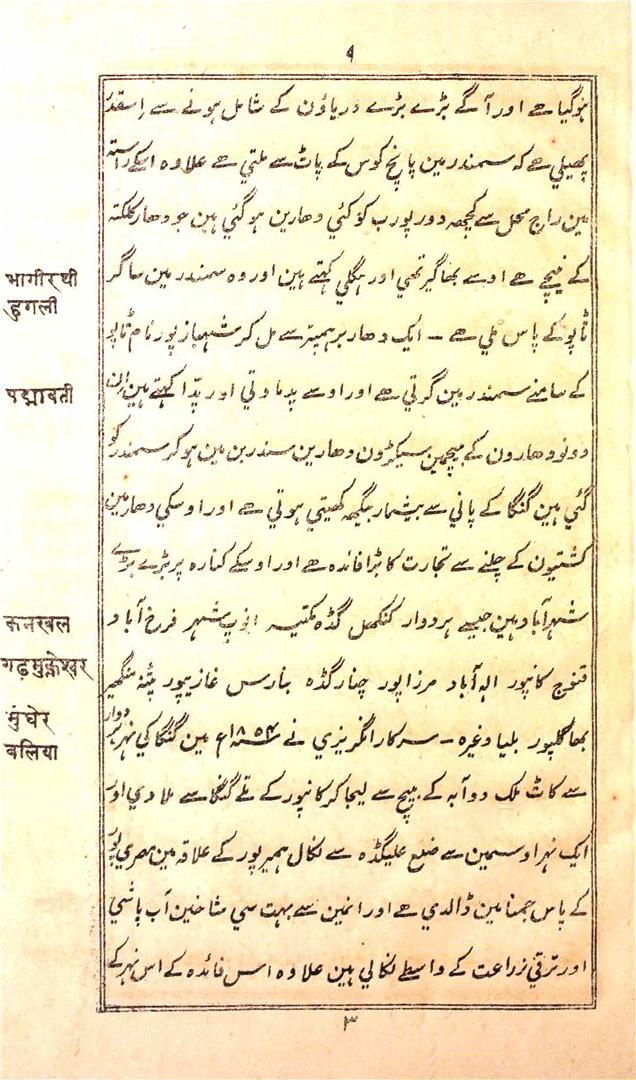 ۹
ہوگیا ہے اور آگے بڑے بڑے دریاؤن کے شامل ہونے سے اِسقدر
پھیلي ہے کہ سمندر مین پانچ کوس کے پاٹ سے ملتي ہے علاوہ اسکے راستہ
مین راج محل سے کچھہ دور پورب کو کئي دھارین ہو گئي ہین جو دھار کلکتہ
کے نیچے ہے اوسے بھاگیرتھي اور ہگلي کہتے ہین اور وہ سمندر مین ساگر
भागीरथी
हुगली
ٹاپو کے پاس ملي ہے – ایک دھار برہمپتر سے مل کر شہباز پور نام ٹاپو
کے سامنے سمندر مین گرتي ہے اور اوسے پدماوتي اور پدا کہتے ہین اِن
पद्मावती
دونو دھارون کے بیچمین سیکڑون دھارین سندربن مین ہو کر سمندر کو
گئي ہین گنگا کے پاني سے بیشمار بیگھہ کھیتي ہوتي ہے اور اوسکي دھار مین
کشتیون کے چلنے سے تجارت کا بڑا فائدہ ہے اور اوسکے کنارہ پر بڑے بڑے
شہر آباد ہین جیسے ہردوار کنکھل گڈہ مکتیسر انوپ شہر فرخ آباد
कनखल
قنوج کانپور الہ آباد مرزاپور چنار گڈہ بنارس غازیپور پٹنہ منگھیر
गढ़मुक्तेश्वर
بھاگلپور بلیا وغیرہ – سرکار انگریزي نے ۱۸۵۴ع مین گنگا کي نہر ہردوار
मुंघेर
बलिया
سے کاٹ تلک دوآبہ کے بیچ سے لیجا کر کانپور کے تلے گنگا سے ملا دي اور
ایک نہر اوسمین سے ضلع علیگڈہ سے نکال ہمیرپور کے علاقہ مین
کے پاس جمنا مین ڈالدي ہے اور انمین سے بہت سي شاخین آب پاشي
اور ترقي زراعت کے واسطے نکالي ہین علاوہ اس فائدہ کے اس نہر کے